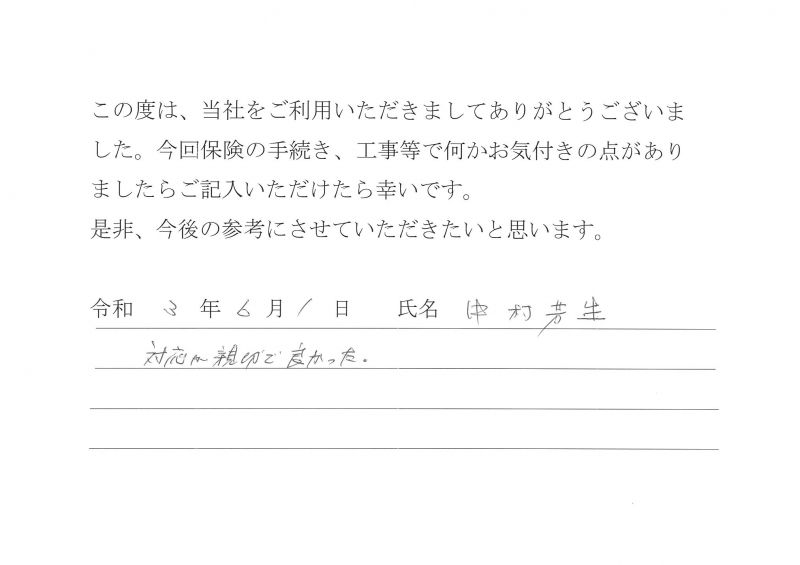 この度は、当社をご利用いただきましてありがとうございま
した。今回保険の手続き、工事等で何かお気付きの点があり
ましたらご記入いただけたら幸いです。
是非、今後の参考にさせていただきたいと思います。
令和 3 年 6 月 1 日 氏名 中村芳生
対応が親切で良かった。